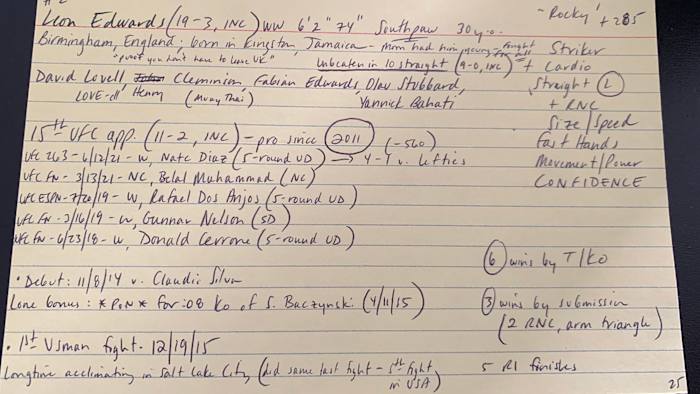 Leon Edwards (19-3, 1NC) WW 6'2" 74" Southpaw 30 y.o. - "Rocky" +285
Birmingham, England; born in Kingston, Jamaica - mom had him
"proof you don't have to leave UK" Unbeaten in 10 straight (9-0, 1NC)
David Lovell, Clemininson, Fabian Edwards, Olav Stubbard,
LOVE-ell Henry (Muay Thai) Yannick Bahati
Striker
+ Cardio
Straight (L)
+ RNC
Size/Speed
Fast Hands
Movement/Power
CONFIDENCE
15th UFC app. (11-2, 1NC) - pro since 2011 (-560)
UFC 263 - 6/12/21 - W, Nate Diaz (5-round UD) → 4-1 v. lefties
UFC FN - 3/13/21 - NC, Belal Muhammad (NC)
UFC ESPN - 7/20/19 - W, Rafael Dos Anjos (5-round UD)
UFC FN - 3/16/19 - W, Gunnar Nelson (SD)
UFC FN - 6/23/18 - W, Donald Cerrone (5-round UD)
• Debut: 11/8/14 v. Claudio Silva
Lone bonus: *PoN* for :08 KO of S. Baczynski (4/11/15)
• 1st Usman fight - 12/19/15
Longtime acclimating in Salt Lake City (did same last fight - 5th fight
in USA)
6 wins by T/KO
3 wins by submission
(2 RNC, arm triangle)
5 R1 finishes
25